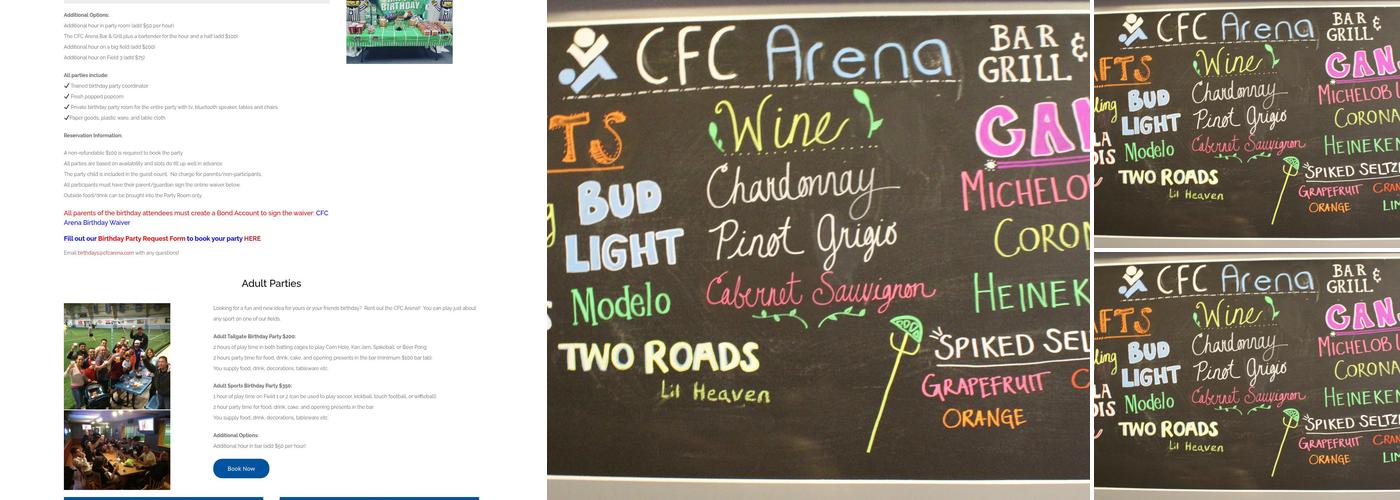 BIRTHDAY
Additional Options:
Additional hour in party room (add $50 per hour)
The CFC Arena Bar & Grill plus a bartender for the hour and a half (add $100)
Additional hour on a big field (add $200)
Additional hour on Field 3 (add $75)
All parties include:
✓ Trained birthday party coordinator
✓ Fresh popped popcorn
✓ Private birthday party room for the entire party with tv, bluetooth speaker, tables and chairs
✓ Paper goods, plastic ware, and table cloth
Reservation Information:
A non-refundable $100 is required to book the party
All parties are based on availability and slots do fill up well in advance
The party child is included in the guest count. No charge for parents/non-participants.
All participants must have their parent/guardian sign the online waiver below
Outside food/drink can be brought into the Party Room only
All parents of the birthday attendees must create a Bond Account to sign the waiver: CFC
Arena Birthday Waiver
Fill out our Birthday Party Request Form to book your party HERE
Email birthdays@cfcarena.com with any questions!
Adult Parties
Looking for a fun and new idea for yours or your friends birthday? Rent out the CFC Arena! You can play just about
any sport on one of our fields.
Adult Tailgate Birthday Party $200:
2 hours of play time in both batting cages to play Corn Hole, Kan Jam, Spikeball, or Beer Pong
2 hours party time for food, drink, cake, and opening presents in the bar (minimum $100 bar tab).
You supply food, drink, decorations, tableware etc.
Adult Sports Birthday Party $350:
1 hour of play time on Field 1 or 2 (can be used to play soccer, kickball, touch football, or wiffleball)
2 hour party time for food, drink, cake, and opening presents in the bar
You supply food, drink, decorations, tableware etc.
Additional Options:
Additional hour in bar (add $50 per hour)
Book Now
CFC Arena BAR &
GRILL
TS
Wine
CAN
BUD
LIGHT
Chardonnay
MICHELO
Pinot Grigio
CORON
Modelo
Cabernet Sauvignon
HEINEKE
TWO ROADS
Lil Heaven
SPIKED SEL
GRAPEFRUIT C
ORANGE
CFC Arena BAR &
GRILL
AFTS
Wine
CAN
BUD
LIGHT
Chardonnay
MICHELOB U
Pinot Grigio
CORONA
Modelo
Cabernet Sauvignon
HEINEKEN
TWO ROADS
Lil Heaven
SPIKED SELTZ
GRAPEFRUIT CRAN
ORANGE LIM
CFC Arena BAR &
GRILL
AFTS
Wine
CAN
BUD
LIGHT
Chardonnay
MICHELOB U
Pinot Grigio
CORONA
Modelo
Cabernet Sauvignon
HEINEKEN
TWO ROADS
Lil Heaven
SPIKED SELTZ
GRAPEFRUIT CRAN
ORANGE LIM